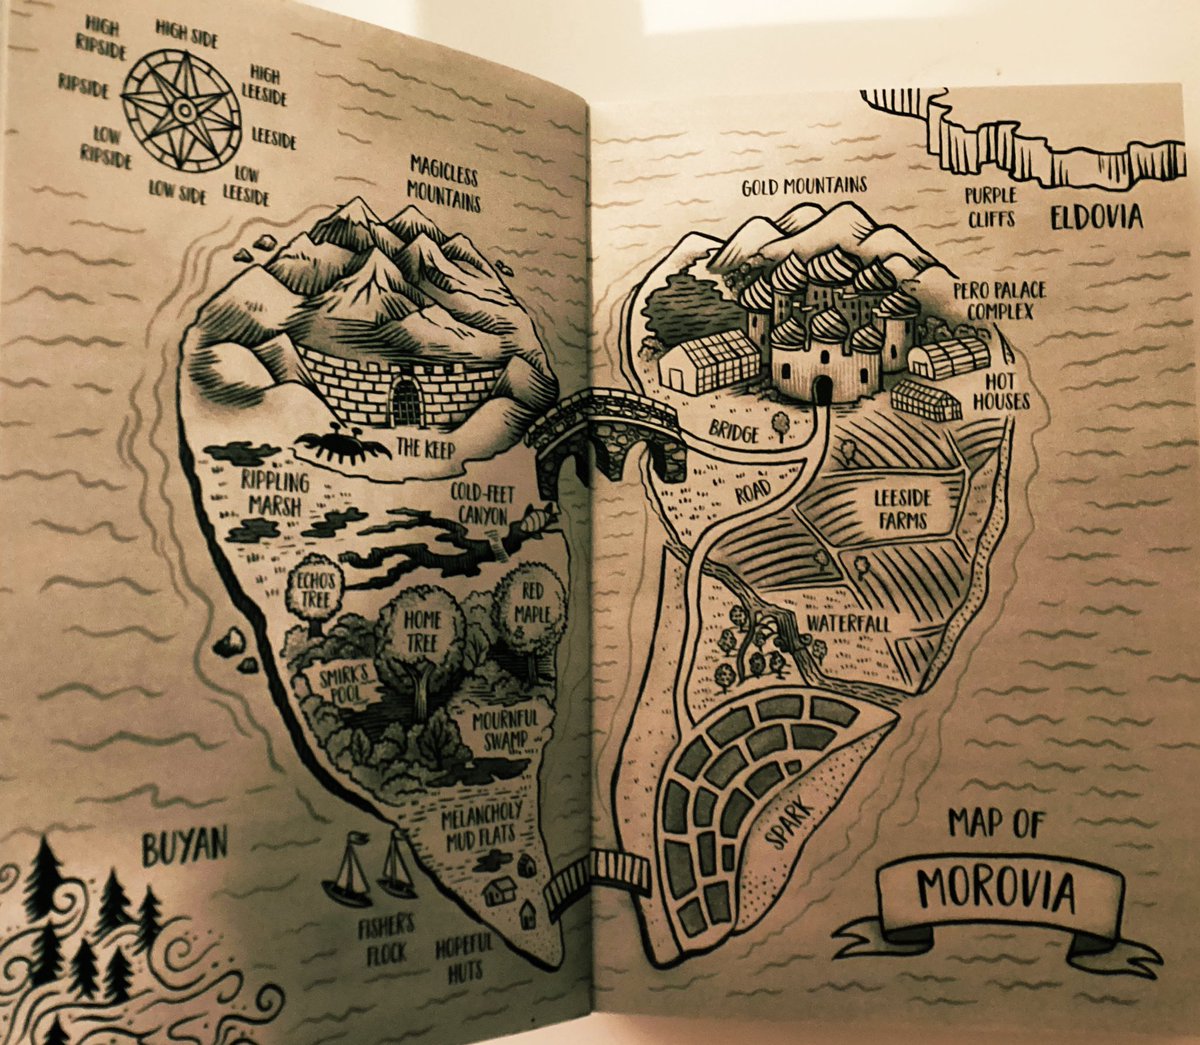 HIGH SIDE
HIGH
RIPSIDE
HIGH
LEESIDE
RIPSIDE
LEESIDE
LOW
RIPSIDE
LOW
LEESIDE
LOW SIDE
MAGICLESS
MOUNTAINS
THE KEEP
RIPPLING
MARSH
COLD-FEET
CANYON
ECHO'S
TREE
HOME
TREE
RED
MAPLE
SMIRK'S
POOL
MOURNFUL
SWAMP
MELANCHOLY
MUD FLATS
BUYAN
FISHER'S
FLOCK
HOPEFUL
HUTS
GOLD MOUNTAINS
PURPLE
CLIFFS
ELDOVIA
PERO PALACE
COMPLEX
HOT
HOUSES
BRIDGE
ROAD
LEESIDE
FARMS
WATERFALL
SPARK
MAP OF
MOROVIA